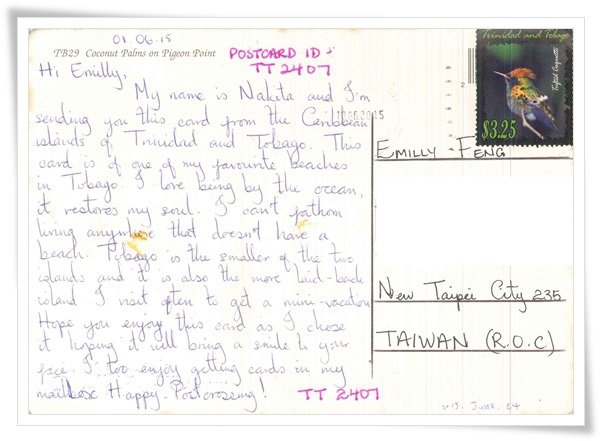 01.06.15
TB29 Coconut Palms on Pigeon Point
POSTCARD ID -
TT 2407
Hi Emilly,
My name is Nakita and I'm
sending you this card from the Caribbean
islands of Trinidad and Tobago. This
card is of one of my favourite beaches
in Tobago. I love being by the ocean,
it restores my soul. I can't fathom
living anywhere that doesn't have a
beach. Tobago is the smaller of the two
islands and it is also the more laid-back
island I visit often to get a mini-vacation
Hope you enjoy this card as I chose
it hoping it will bring a smile to your
face. I too enjoy getting cards in my
mailbox Happy Postcrossing!
TT 2407
Trinidad and Tobago
Tufted Coquette
$3.25
EMILLY FENG
New Taipei City 235
TAIWAN (R.O.C)